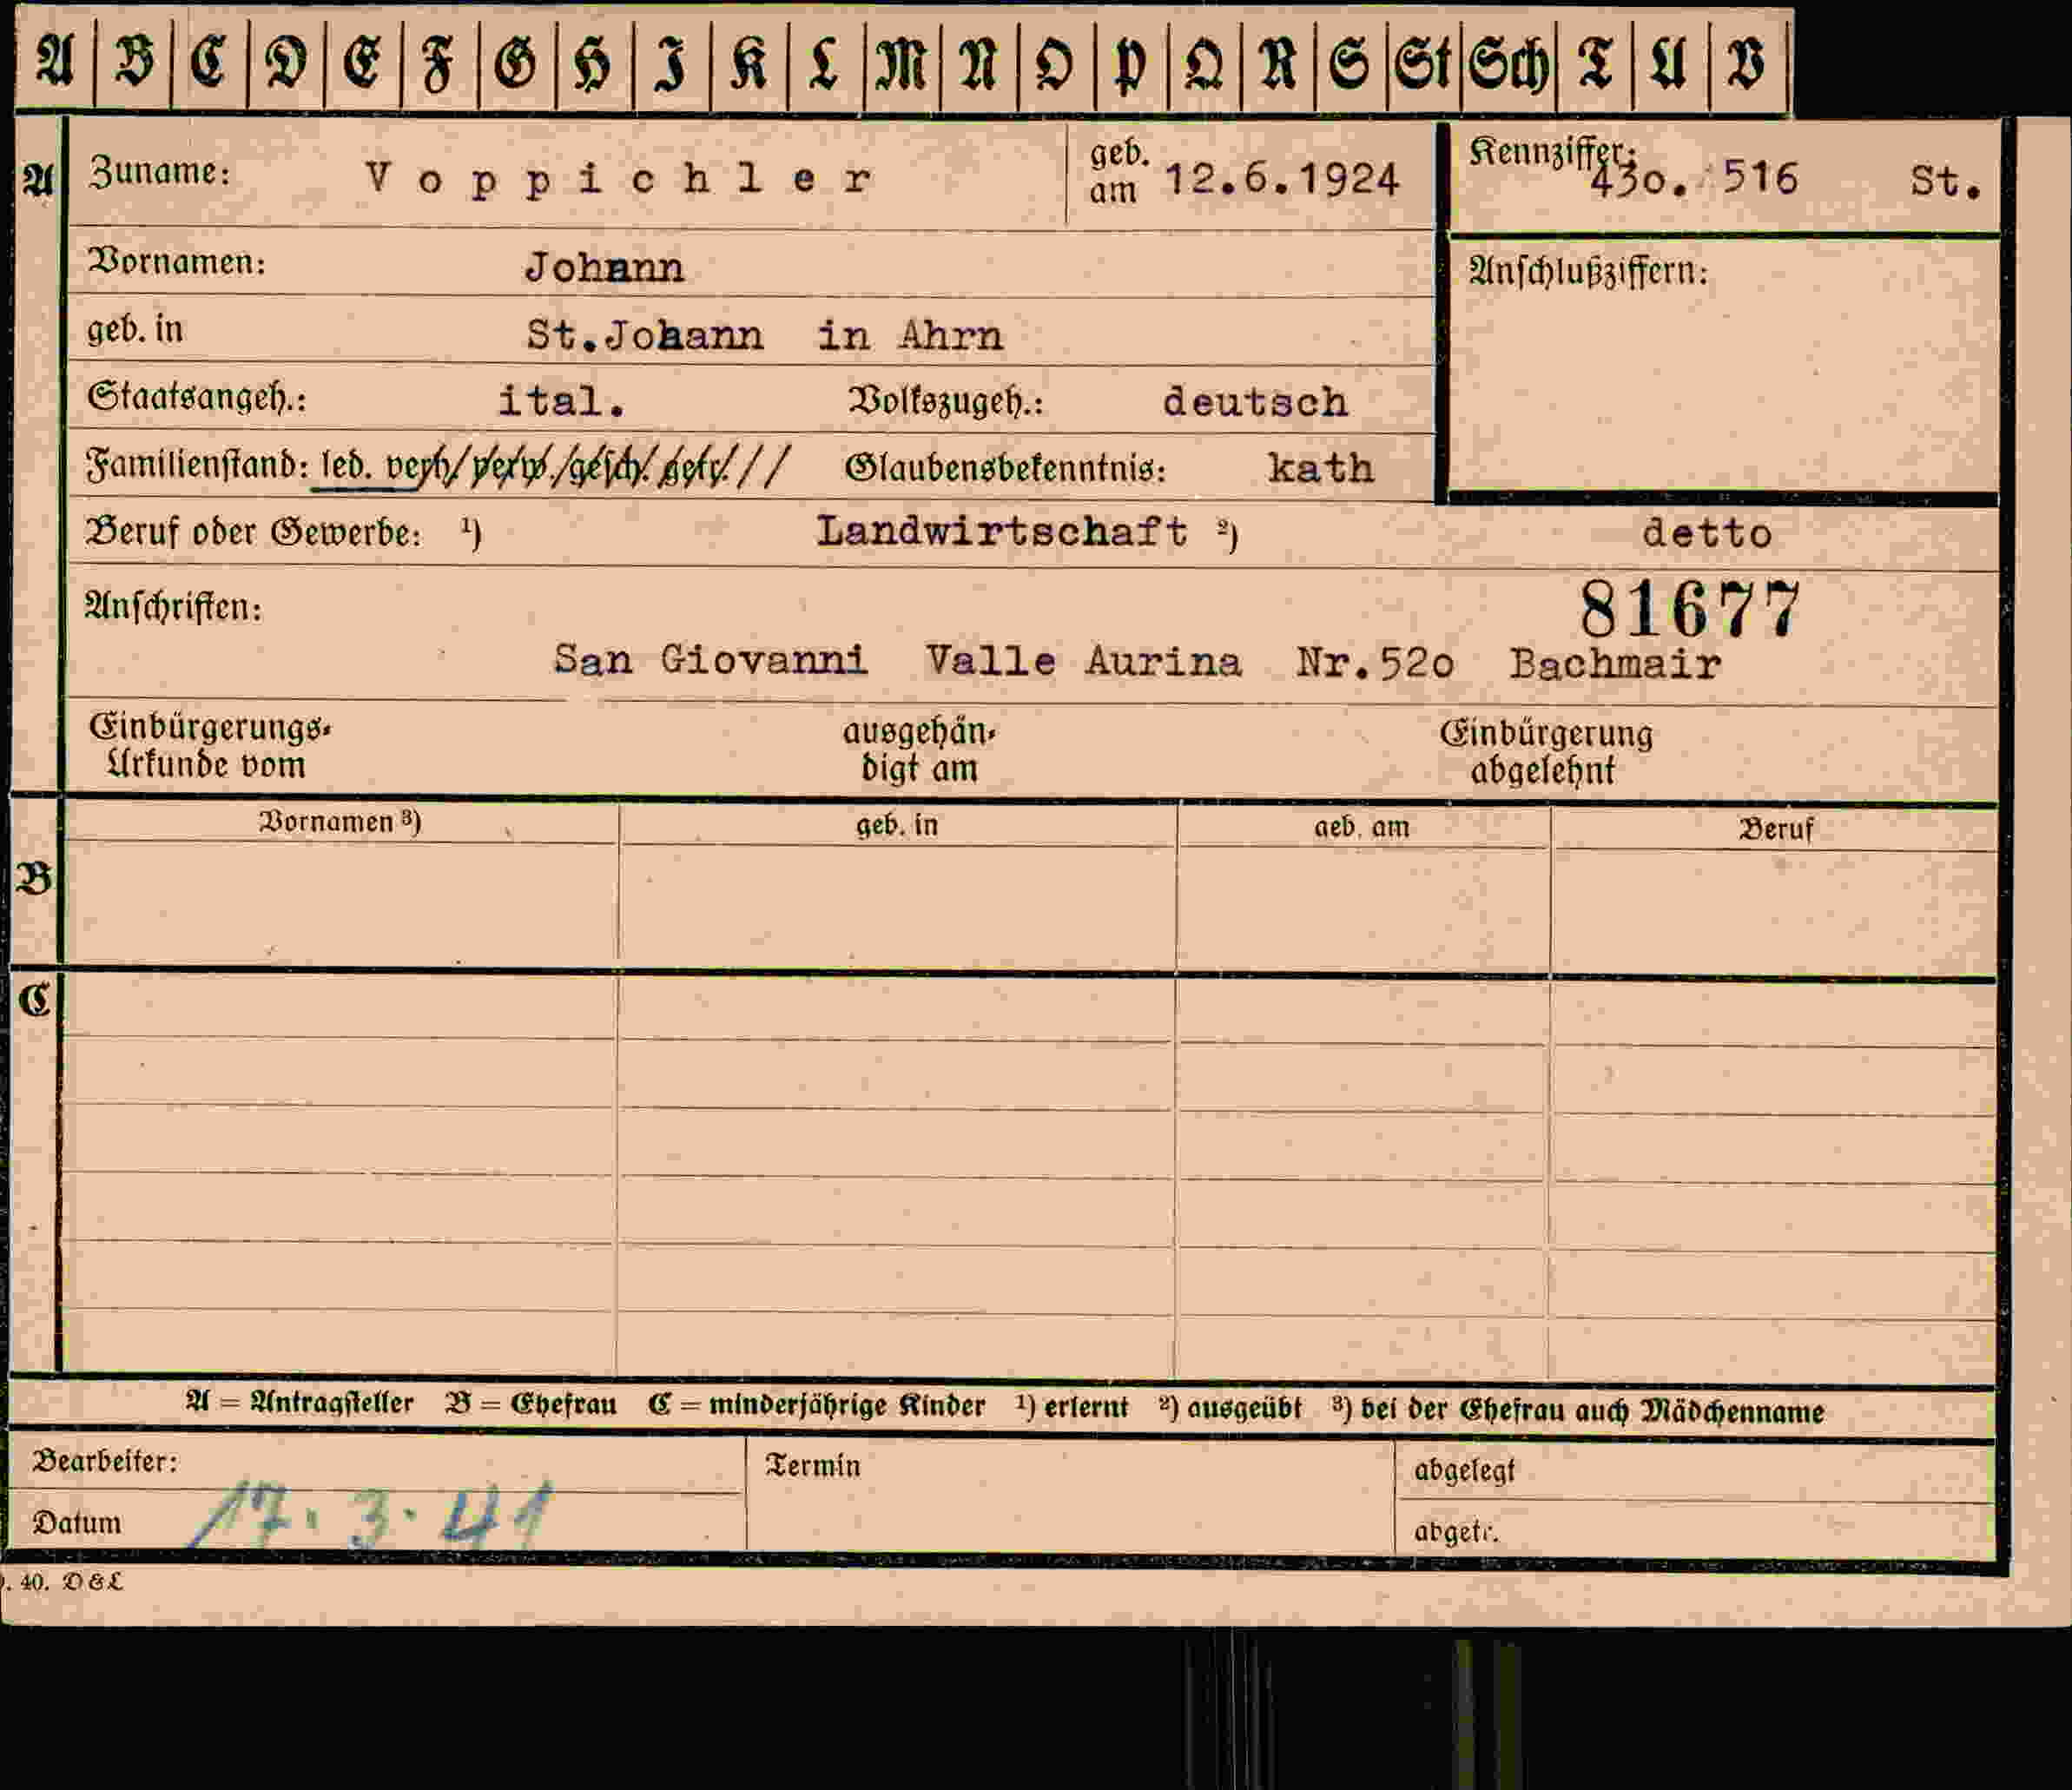 A B C D E F G H I K L M N O P Q R S St Sch T U V
A Zuname: Voppichler geb. am 12.6.1924 Kennziffer: 43o. 516 St.
Vornamen: Johann Anschlußziffern:
geb. in St.Johann in Ahrn
Staatsangeh.: ital. Volkszugeh.: deutsch
Familienstand: led. verh/ verw./gesch. getr. // Glaubensbekenntnis: kath
Beruf oder Gewerbe: ¹) Landwirtschaft ²) detto
Anschriften: 81677
San Giovanni Valle Aurina Nr.52o Bachmair
Einbürgerungs- ausgehän- Einbürgerung
Urkunde vom digt am abgelehnt
Vornamen ³) geb. in geb. am Beruf
B
C
A = Antragsteller B = Ehefrau C = minderjährige Kinder ¹) erlernt ²) ausgeübt ³) bei der Ehefrau auch Mädchenname
Bearbeiter: Termin abgelegt
Datum 17.3.41 abgetr.
. 40. D&L